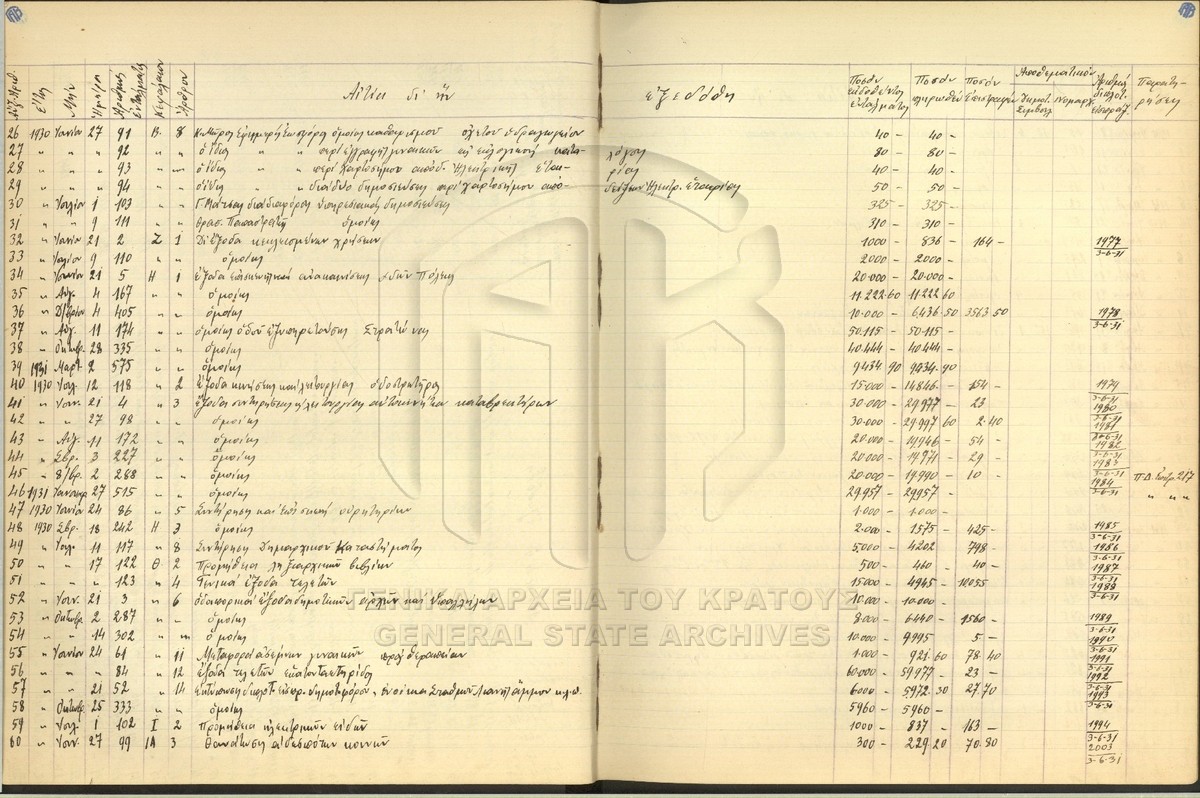 Αὔξ. Ἀριθ. Ἔτος Μήν Ἡμέρα Ἀριθμός ἐντάλματος Κεφάλαιον Ἄρθρον Αἰτία δι' ἥν ἐξεδόθη Ποσόν ἐκδοθέντος ἐντάλματος Ποσόν πληρωθέν Ποσόν ἐπιστραφέν Ἀποθεματικόν Χρημ. Συμβολ. Νομαρχ. Ἀριθμός διπλοτ. εἰσπράξ. Παρατηρήσεις
26 1930 Ἰουνίου 27 91 Β 8 ὁμοίως καθαρισμοῦ ὀχετοῦ ὑδραγωγείου 40 - 40 -
27 " " " 92 " " ὁ ἴδιος " " περί ἐγγραφῆς γυναικῶν εἰς ἐκλογικούς καταλόγους 80 - 80 -
28 " " " 93 " " ὁ ἴδιος " " περί χαρτοσήμου ἀποδ. Ἠλεκτρικῆς Ἑταιρίας 40 - 40 -
29 " " " 94 " " ὁ ἴδιος " " διά δύο δημοσιεύσεις περί χαρτοσήμου ἀποδείξεων Ἠλεκτρ. ἑταιρίας 50 - 50 -
30 " Ἰουλίου 1 103 " " διά διαφόρους ὑπηρεσιακάς δημοσιεύσεις 325 - 325 -
31 " " 9 111 " " Θρασ. Παπαστρατῆς ὁμοίως 310 - 310 -
32 " Ἰουνίου 21 2 Ζ 1 Δι' ἔξοδα κεκλεισμένων χρήσεων 1000 - 836 - 164 - 1977 3-6-31
33 " Ἰουλίου 9 110 " ὁμοίως 2000 - 2000 -
34 " Ἰουνίου 21 5 Η 1 Ἔξοδα ἐπισκευῆς καί ἀνακαινίσεως ὁδῶν Πόλεως 20.000 - 20.000 -
35 " Αὔγ. 4 167 " " ὁμοίως 11.222.60 11.222 60
36 " Δ/βρίου 4 405 " " ὁμοίως 10.000 - 6436.50 3563.50 1978 3-6-31
37 " Αὔγ. 11 174 " " ὁμοίως ὁδοῦ ἐξυπηρετούσης Στρατῶνας 50.115 - 50.115 -
38 " Ὀκτωβρ. 28 335 " " ὁμοίως 40.444 - 40.444 -
39 1931 Μαρτ. 2 575 " " ὁμοίως 9434 90 9434.90
40 1930 Ἰουλ. 12 118 " 2 Ἔξοδα κινήσεως καί λειτουργίας ὁδοστρωτῆρος 15.000 - 14846 - 154 - 1979 3-6-31
41 " Ἰουν. 21 4 " 3 Ἔξοδα συντηρήσεως καί λειτουργίας αὐτοκινήτων καταβρεκτήρων 30.000 - 29977 - 23 1980 3-6-31
42 " " 27 98 " ὁμοίως 30.000 - 29997 60 2.40 1981
43 " Αὔγ. 11 172 " ὁμοίως 20.000 - 19946 - 54 - 1982 3-6-31
44 " Σβρ. 3 227 " " ὁμοίως 20.000 - 19.971 - 29 - 1983 3-6-31
45 " 8/βρ. 2 288 " " ὁμοίως 20.000 - 19.990 - 10 - 1984 3-6-31 Π.Δ. 217
46 1931 Ἰανουαρ. 27 515 " " ὁμοίως 29.957 - 29957 - " " "
47 1930 Ἰουνίου 24 86 " 5 Συντήρησις καί ἐπισκευή οὐρητηρίων 1.000 - 1.000 -
48 1930 Σβρ. 18 242 Η 3 ὁμοίως 2.000 - 1575 - 425 - 1985 3-6-31
49 " Ἰουλ. 11 117 " 8 Συντήρησις Δημαρχιακοῦ Καταστήματος 5.000 - 4202 798 - 1986 3-6-31
50 " " 17 122 Θ 2 Προμήθεια ληξιαρχικῶν βιβλίων 500 - 460 - 40 - 1987 3-6-31
51 " " " 123 " 4 Γενικά ἔξοδα τελετῶν 15000 - 4945 - 10055 1988 3-6-31
52 " Ἰουν. 21 3 " 6 Ὁδοιπορικά ἔξοδα δημοτικῶν ἀρχῶν καί ὑπαλλήλων 10.000 - 10.000 -
53 " Ὀκτωβρ. 2 287 " " ὁμοίως 8.000 - 6440 - 1560 - 1989 3-6-31
54 " " 14 302 " " ὁμοίως 10.000 - 9995 5 - 1990 3-6-31
55 " Ἰουνίου 24 61 " 11 Μεταφοραί ἀσθενῶν γυναικῶν πρός θεραπείαν 1.000 - 921.60 78.40 1991 3-6-31
56 " " " 84 " 12 Ἔξοδα τελετῶν ἑκατονταετηρίδος 60.000 - 59977 - 23 - 1992 3-6-31
57 " " 21 52 " 14 6000 - 5972.30 27.70 1993 3-6-31
58 " Ὀκτωβρ. 25 333 " " ὁμοίως 5960 - 5960 -
59 " Ἰουλ. 1 102 Ι 2 Προμήθεια ἠλεκτρικῶν εἰδῶν 1000 - 837 - 163 - 1994 3-6-31
60 " Ἰουν. 27 99 ΙΑ 3 Θανάτωσις ἀδεσπότων κυνῶν 300 - 229.20 70.80 2003 3-6-31
ΓΕΝΙΚΑ ΑΡΧΕΙΑ ΤΟΥ ΚΡΑΤΟΥΣ
GENERAL STATE ARCHIVES